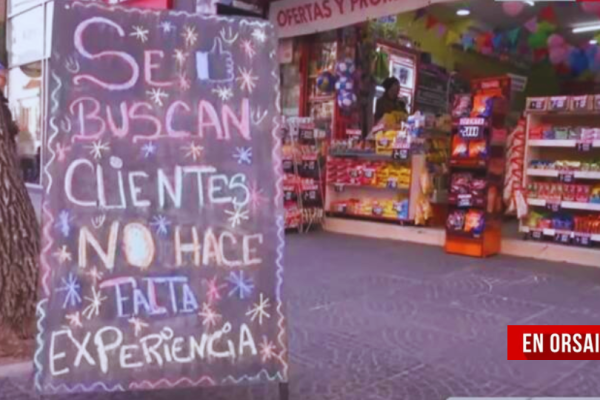 OFERTAS Y PROMO
SE
BUSCAN
CLIENTES
NO HACE
FALTA
EXPERIENCIA
EN ORSAI